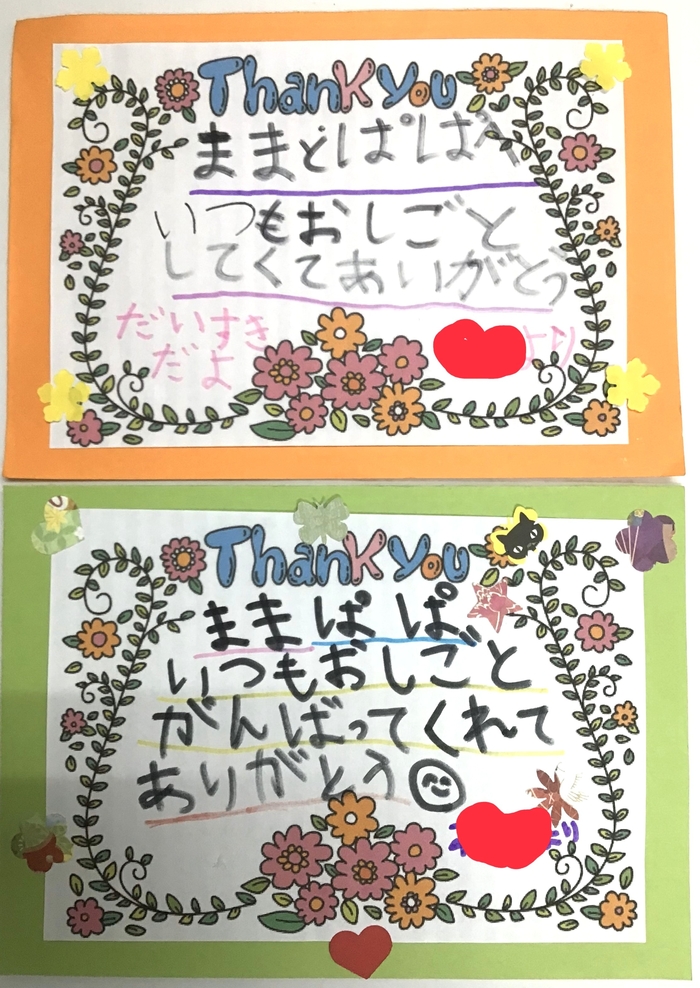 Thank you
ままとぱぱへ
いつもおしごと
してくてあいがとう
だいすき
だよ
より
Thank you
ままぱぱ
いつもおしごと
がんばってくれて
ありがとう